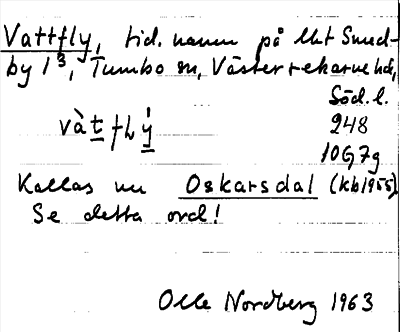 Vattfly, tid. namn på lht Smed-
by 1³, Tumbo sn, Västerrekarne hd,
Söd. l.
vàt̲flý̲ 248
10G7g
Kallas nu Oskarsdal (kb1955)
Se detta ord!
Olle Nordberg 1963